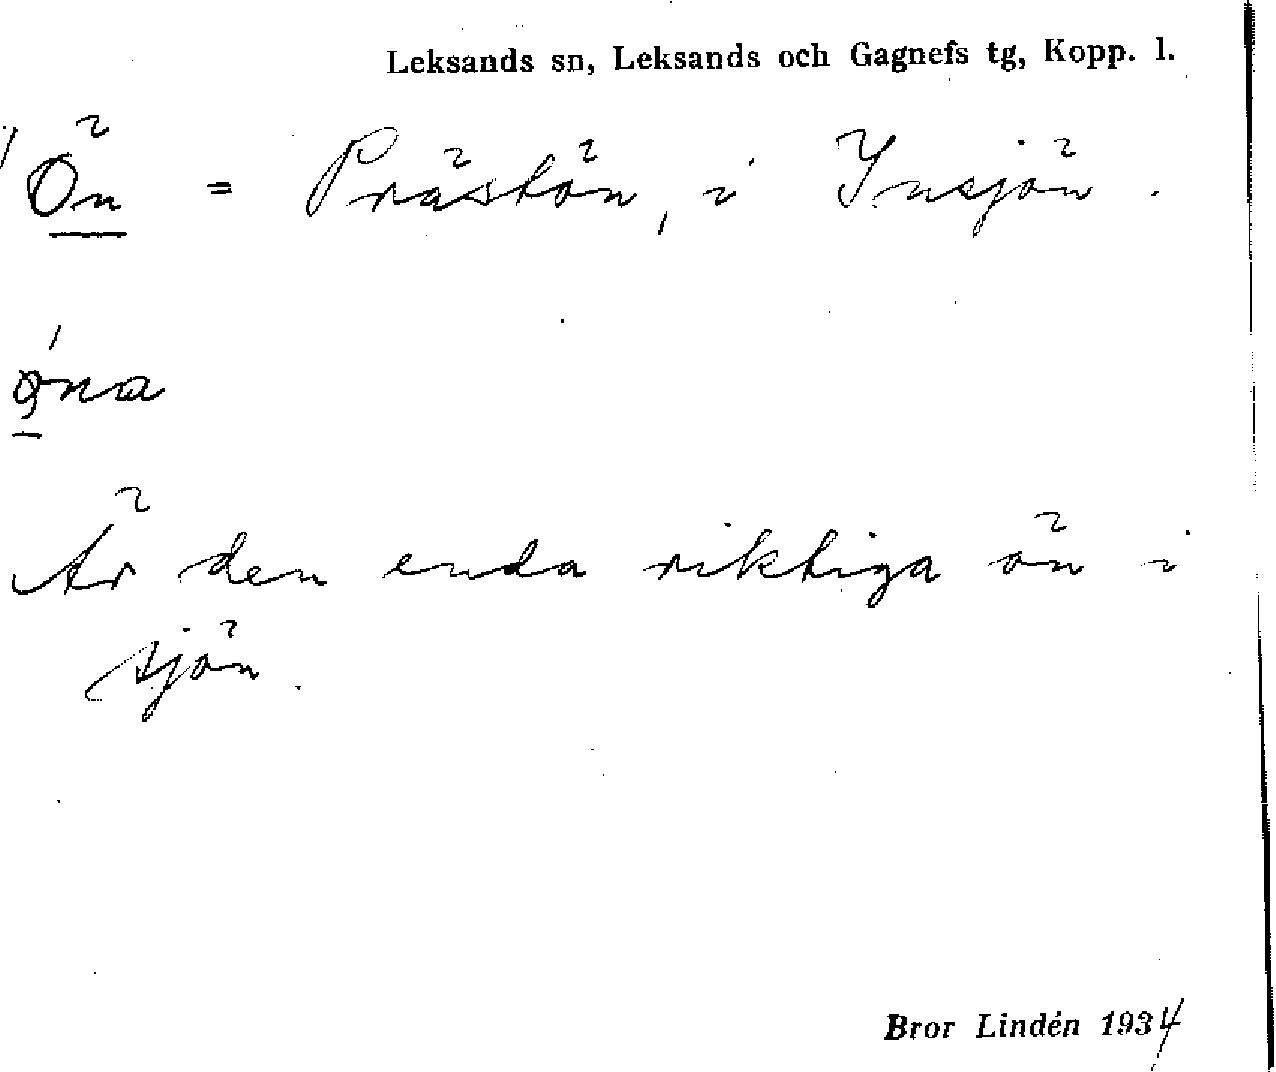 Leksands sn, Leksands och Gagnefs tg, Kopp. l.
Ön = Prästön, i Insjön.
Är den enda riktiga ön i
sjön.
Bror Lindén 1934